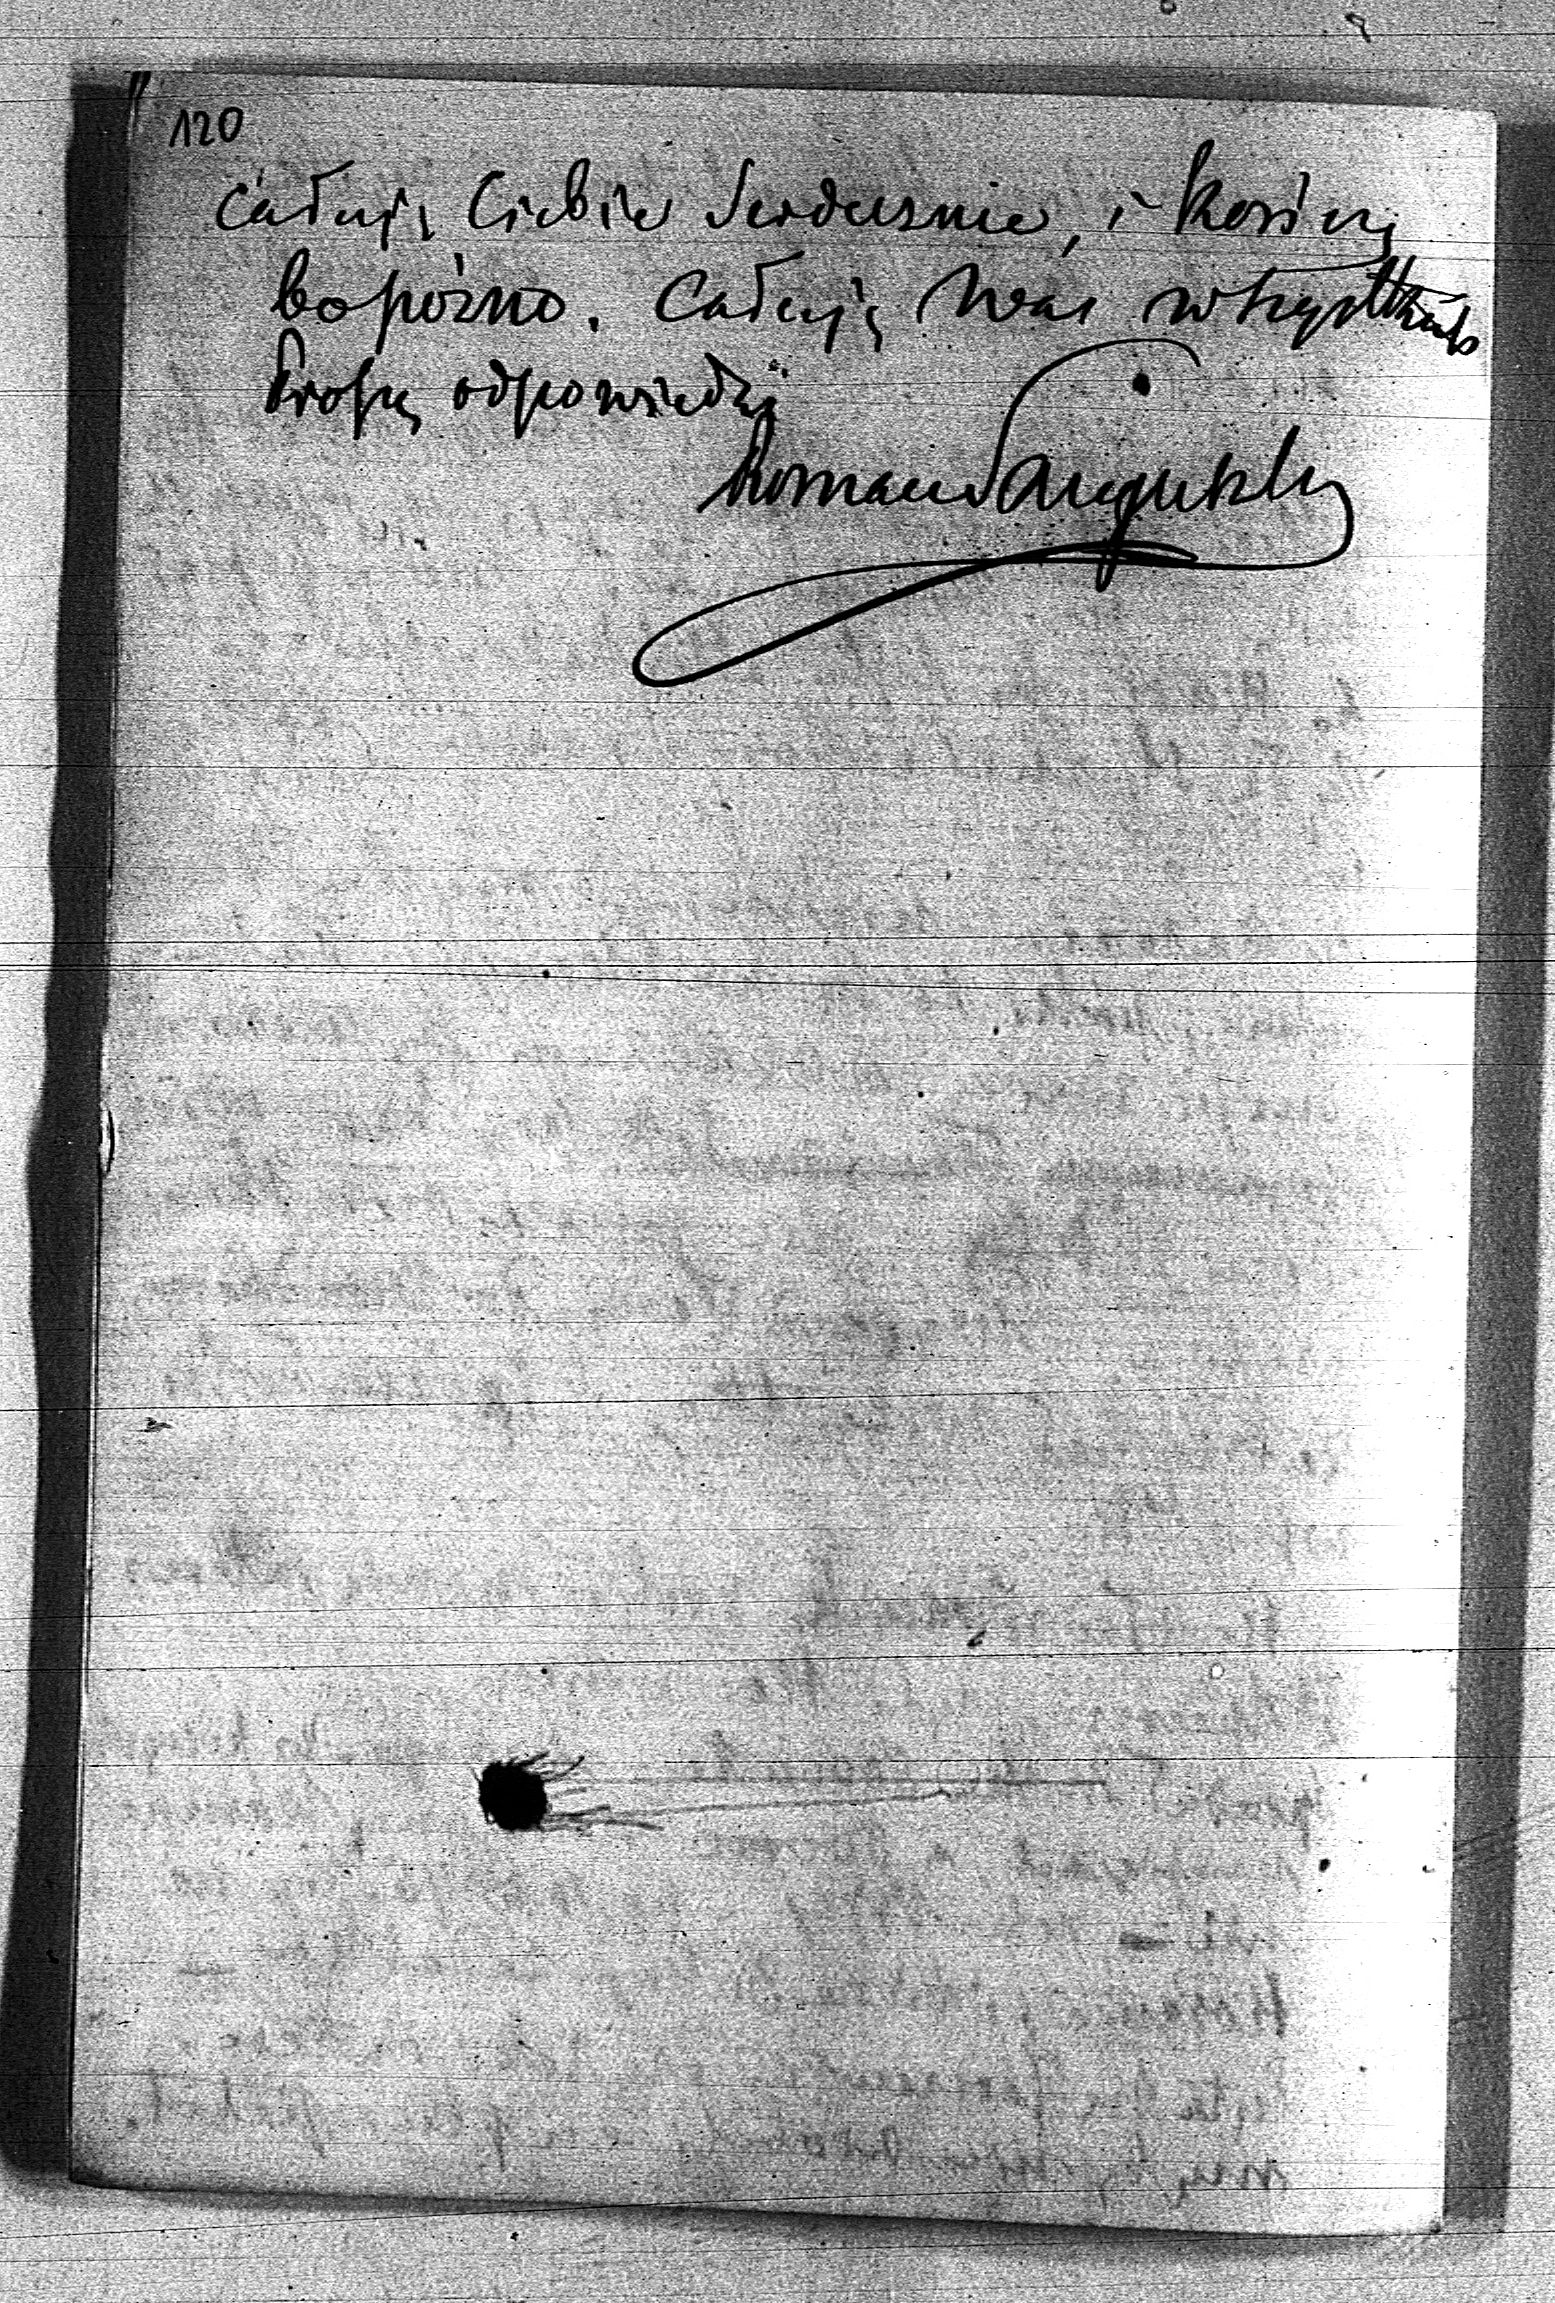 120
Całuję Ciebie Serdecznie, i kończę
bo późno. Całuję Was wszystkich
Proszę odpowiedzi
Roman Sanguszko